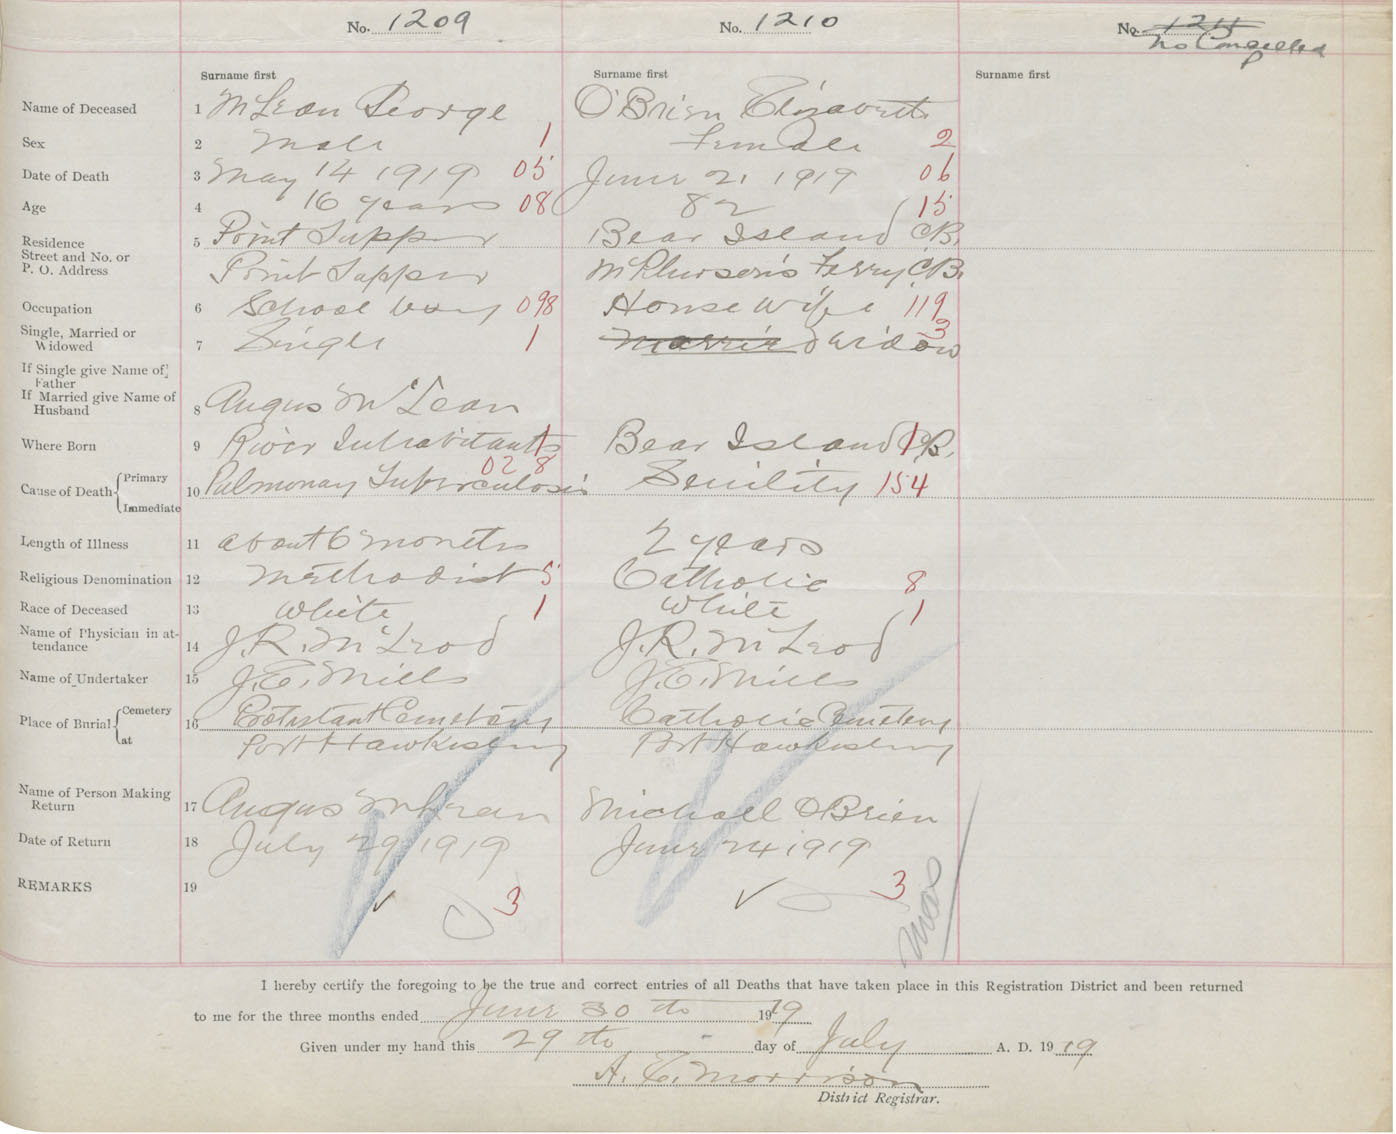 No. 1209 No. 1210 No. 1211
No Cancelled
Surname first Surname first Surname first
Name of Deceased 1 McLean George O'Brien Elizabeth
Sex 2 Male 1 Female 2
Date of Death 3 May 14 1919 05 June 21 1919 06
Age 4 16 years 08 82 15
Residence 5 Point Tupper Bear Island C.B.
Street and No. or
P. O. Address Point Tupper McPherson's Ferry C.B.
Occupation 6 School boy 098 House wife 119
Single, Married or
Widowed 7 Single 1 Married Widow 3
If Single give Name of
Father
If Married give Name of
Husband 8 Angus McLean
Where Born 9 River Inhabitants 1 Bear Island C.B. 1
028
Cause of Death { Primary 10 Pulmonary Tuberculosis Senility 154
Immediate
Length of Illness 11 about 6 months 2 years
Religious Denomination 12 Methodist 5 Catholic 8
Race of Deceased 13 White 1 White 1
Name of Physician in at-
tendance 14 J. R. McLeod J. R. McLeod
Name of Undertaker 15 J. E. Mills J. E. Mills
Place of Burial { Cemetery 16 Protestant Cemetery Catholic Cemetery
at Port Hawkesbury Port Hawkesbury
Name of Person Making
Return 17 Angus McLean Michael O'Brien
Date of Return 18 July 29 1919 June 24 1919
REMARKS 19 3 3
I hereby certify the foregoing to be the true and correct entries of all Deaths that have taken place in this Registration District and been returned
to me for the three months ended June 30 th 1919
Given under my hand this 29 th day of July A. D. 1919
A. E. Morrison
District Registrar.